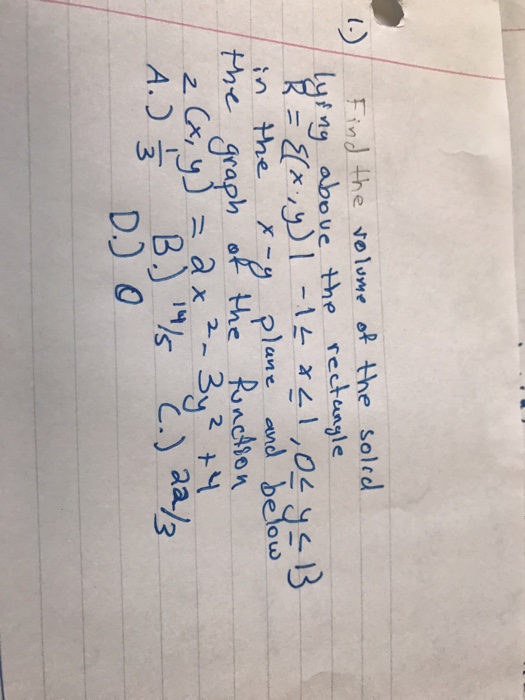 1.) Find the volume of the solid
lying above the rectangle
R = {(x,y) | -1 ≤ x ≤ 1, 0 ≤ y ≤ 1}
in the x-y plane and below
the graph of the function
z(x,y) = 2x² - 3y² + 4
A.) 1/3 B.) 14/5 C.) 22/3
D.) 0